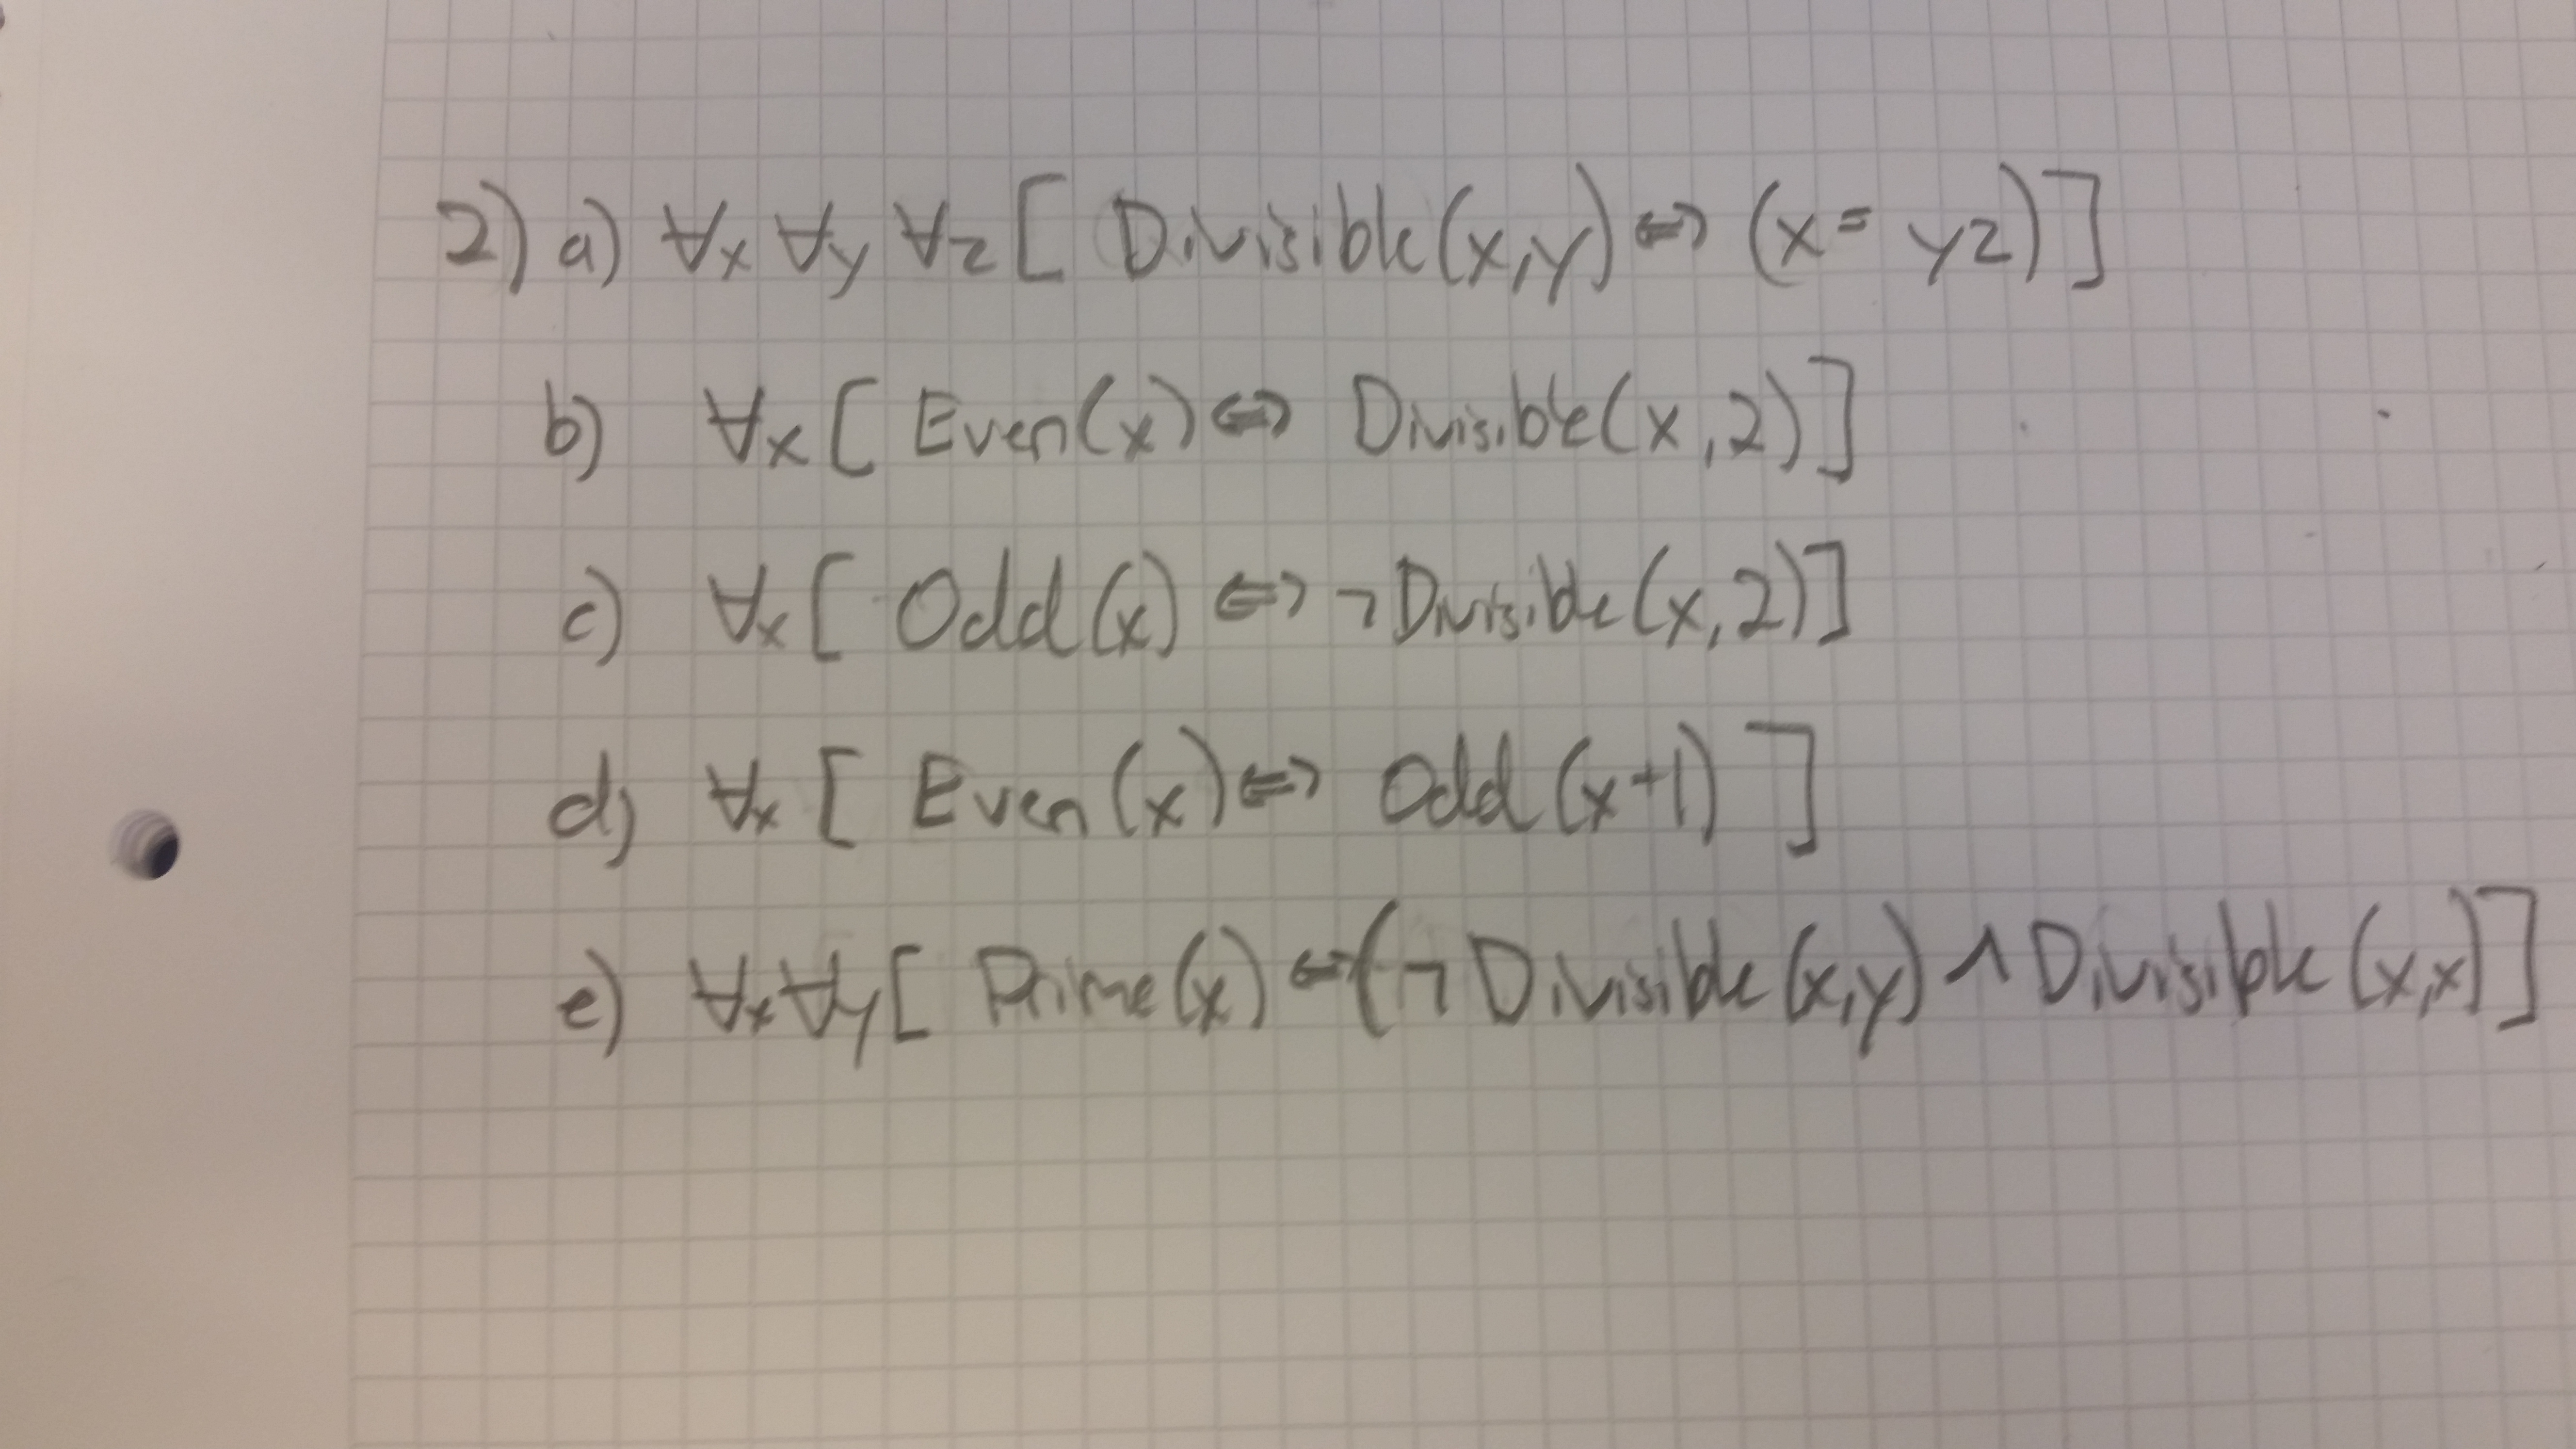 2) a) ∀x ∀y ∀z [ Divisible(x,y) ⇔ (x = yz)]
b) ∀x [ Even(x) ⇔ Divisible(x,2)]
c) ∀x [ Odd(x) ⇔ ¬Divisible(x,2)]
d) ∀x [ Even(x) ⇔ Odd(x+1) ]
e) ∀x∀y[ Prime(x) ⇔ (¬Divisible(x,y) ∧ Divisible(x,x)]